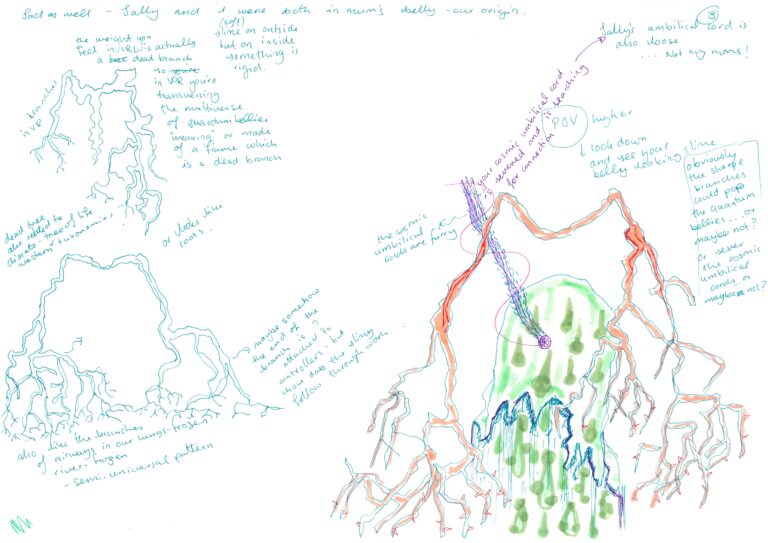 Sad as well - Sally and I were both in mum's belly - our origin.
the weight you
feel in IRL is actually
a dead branch
so you're
in VR you're
transversing
the multiverse
of quantum bellies
"wearing" or made
of a frame which
is a dead branch
(soft)
slime on outside
but on inside
something is
rigid.
branches
in VR
dead tree
also related to
climate, tree of life
western taxonomies
or looks like
roots.
maybe somehow
the end of the
branch is?
attached to
controllers. but
how does the
follow through work
also like the branches
of airways in our lungs - frozen
river - frozen
- semi-universal pattern
your cosmic umbilical cord
is severed and is searching
for connection
Sally's umbilical cord is
also loose
... Not my mums!
POV
higher
↓ look down
and see your
belly leaking slime
the cosmic
umbilical
cords are furry
obviously
the sharp
branches
could pop
the quantum
bellies... or
maybe not?
or sever
the cosmic
umbilical
cords or
maybe not?